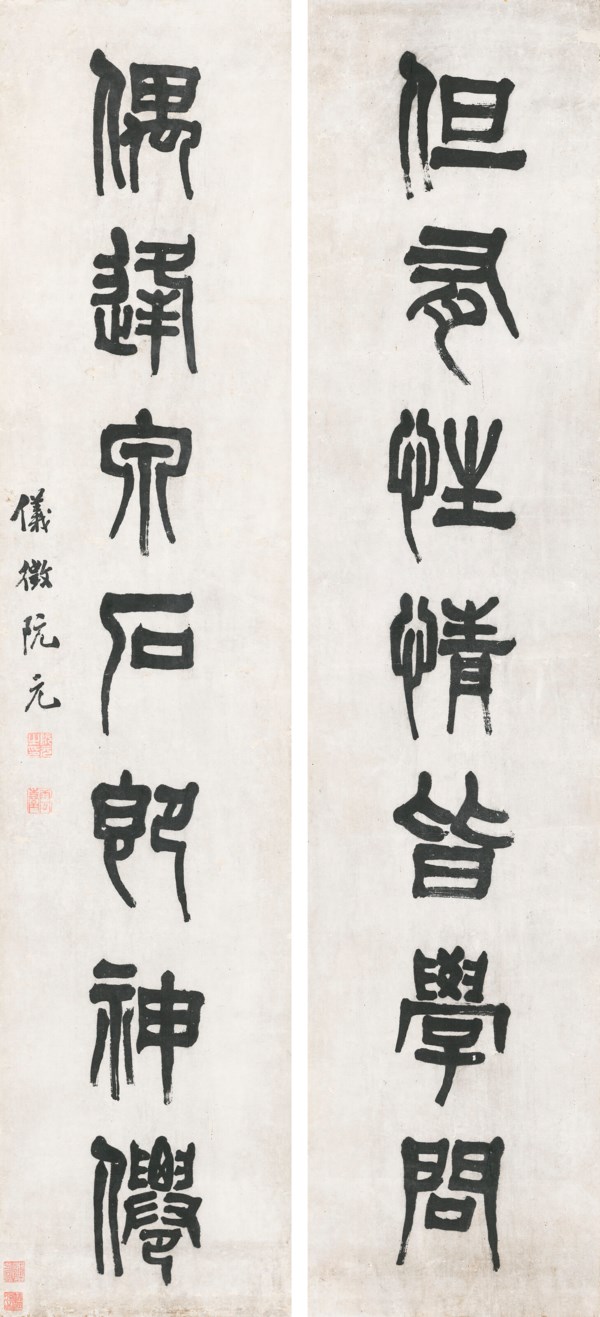 但有性情皆學問
偶逢泉石即神僊
儀徵阮元